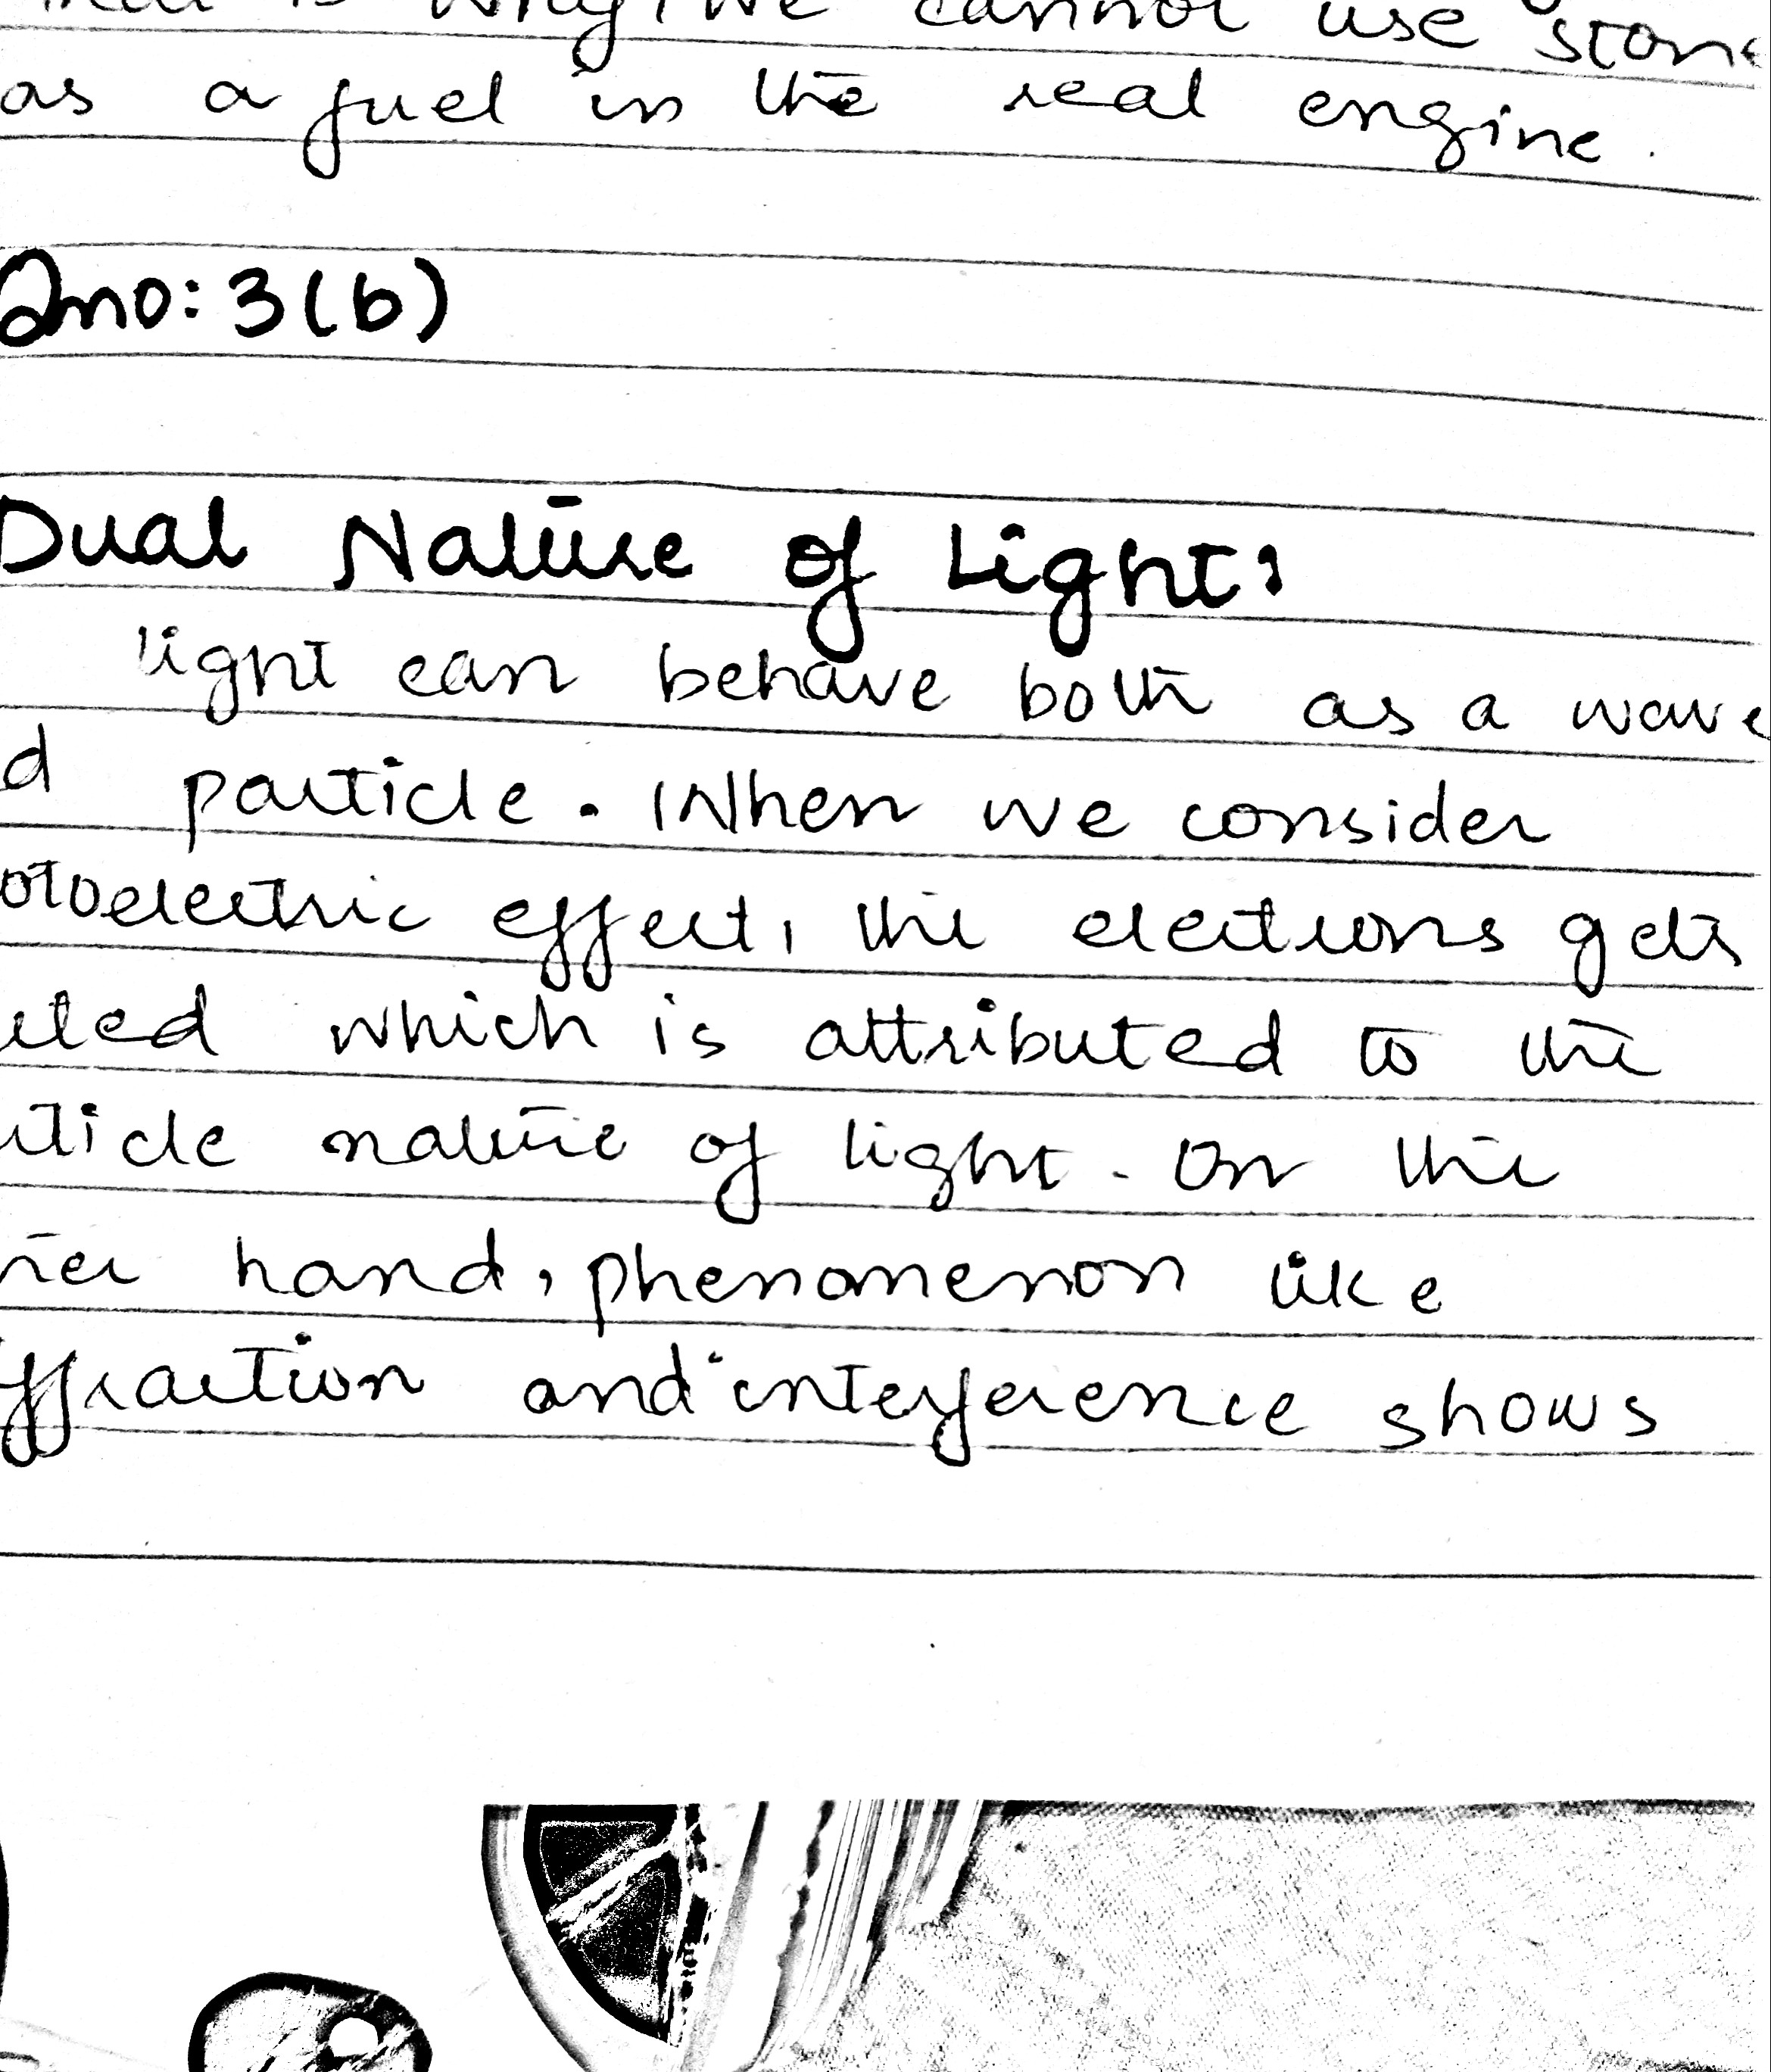 why, we cannot use
as a fuel in the real engine.
Qno: 3(b)
Dual Nature of Light:
light can behave both as a wave
d particle. When we consider
otoelectric effect, the electrons gets
which is attributed to the
rticle nature of light. On the
her hand, phenomenon like
ffraction and interference shows